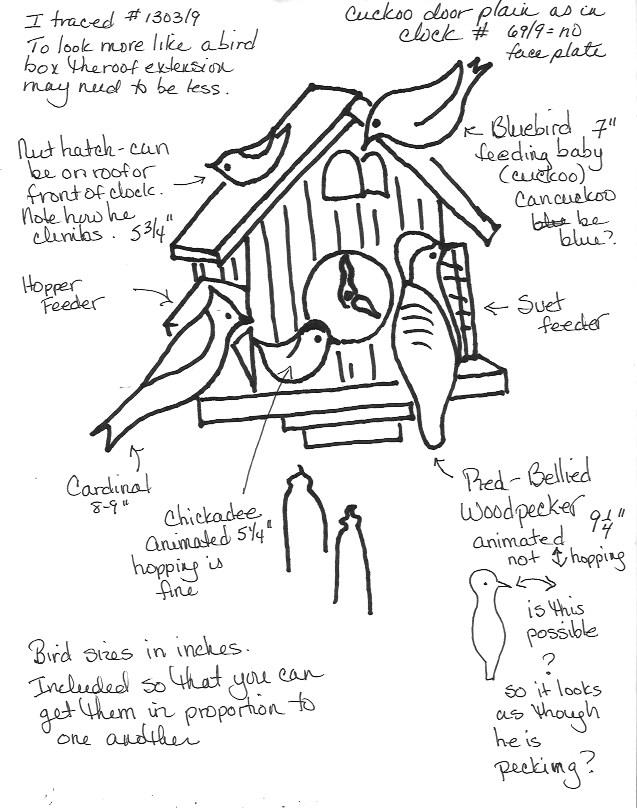 I traced # 1303/9
To look more like a bird
box & the roof extension
may need to be less.
Cuckoo door plain as in
clock # 69/9 = no
face plate
Nuthatch - can
be on roof or
front of clock.
Note how he
climbs. 5 3/4"
Bluebird 7"
feeding baby
(cuckoo)
Can cuckoo
be
blue?
Hopper
Feeder
Suet
feeder
Cardinal
8-9"
Chickadee
animated 5 1/4"
hopping is
fine
Red-Bellied
Woodpecker 9 1/4"
animated
not ↕ hopping
is this
possible
?
so it looks
as though
he is
pecking?
Bird sizes in inches.
Included so that you can
get them in proportion to
one another